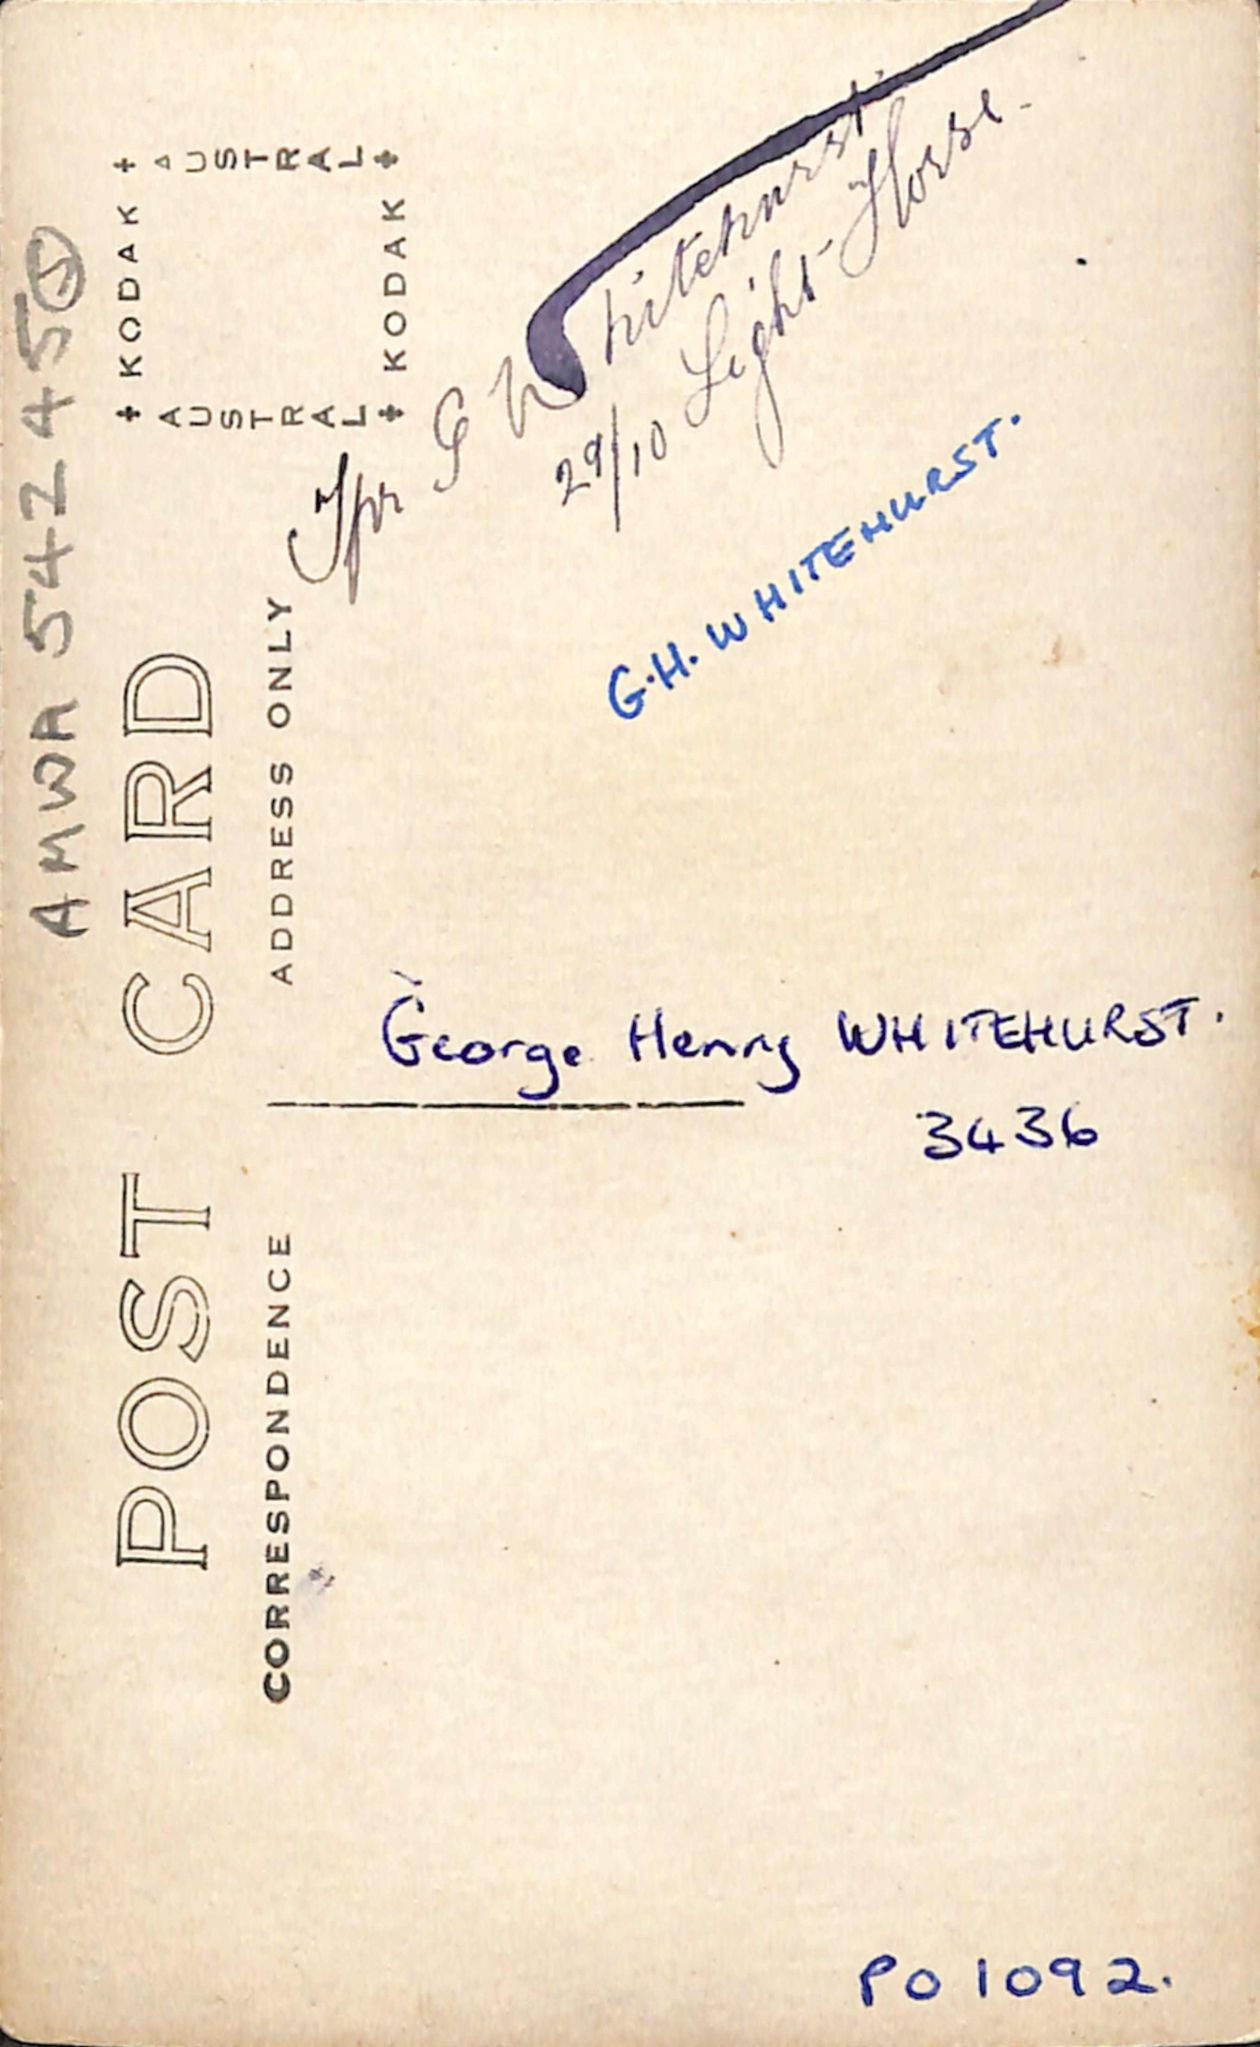 AMWA 54245①
POST CARD
+ KODAK +
AUSTRAL
AUSTRAL
+ KODAK +
CORRESPONDENCE
ADDRESS ONLY
Tpr G Whitehurst
29/10 Light-Horse.
G.H. WHITEHURST.
George Henry WHITEHURST.
3436
PO 1092.